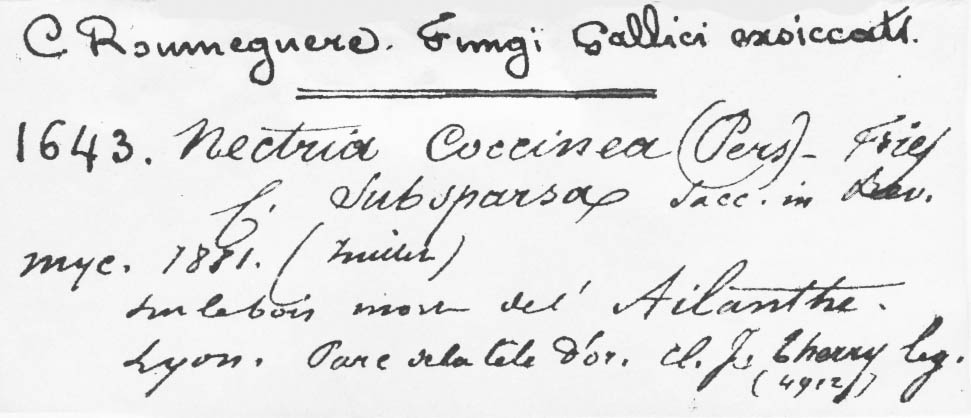 C. Roumeguere. Fungi Gallici exsiccati.
1643. Nectria Coccinea (Pers) - Fries
f. Subsparsa Sacc. in Rev.
myc. 1881. (Juillet)
sur le bois mort de l' Ailanthe.
Lyon. Parc de la tête d'or. cl. J. Therry leg.
(4912)